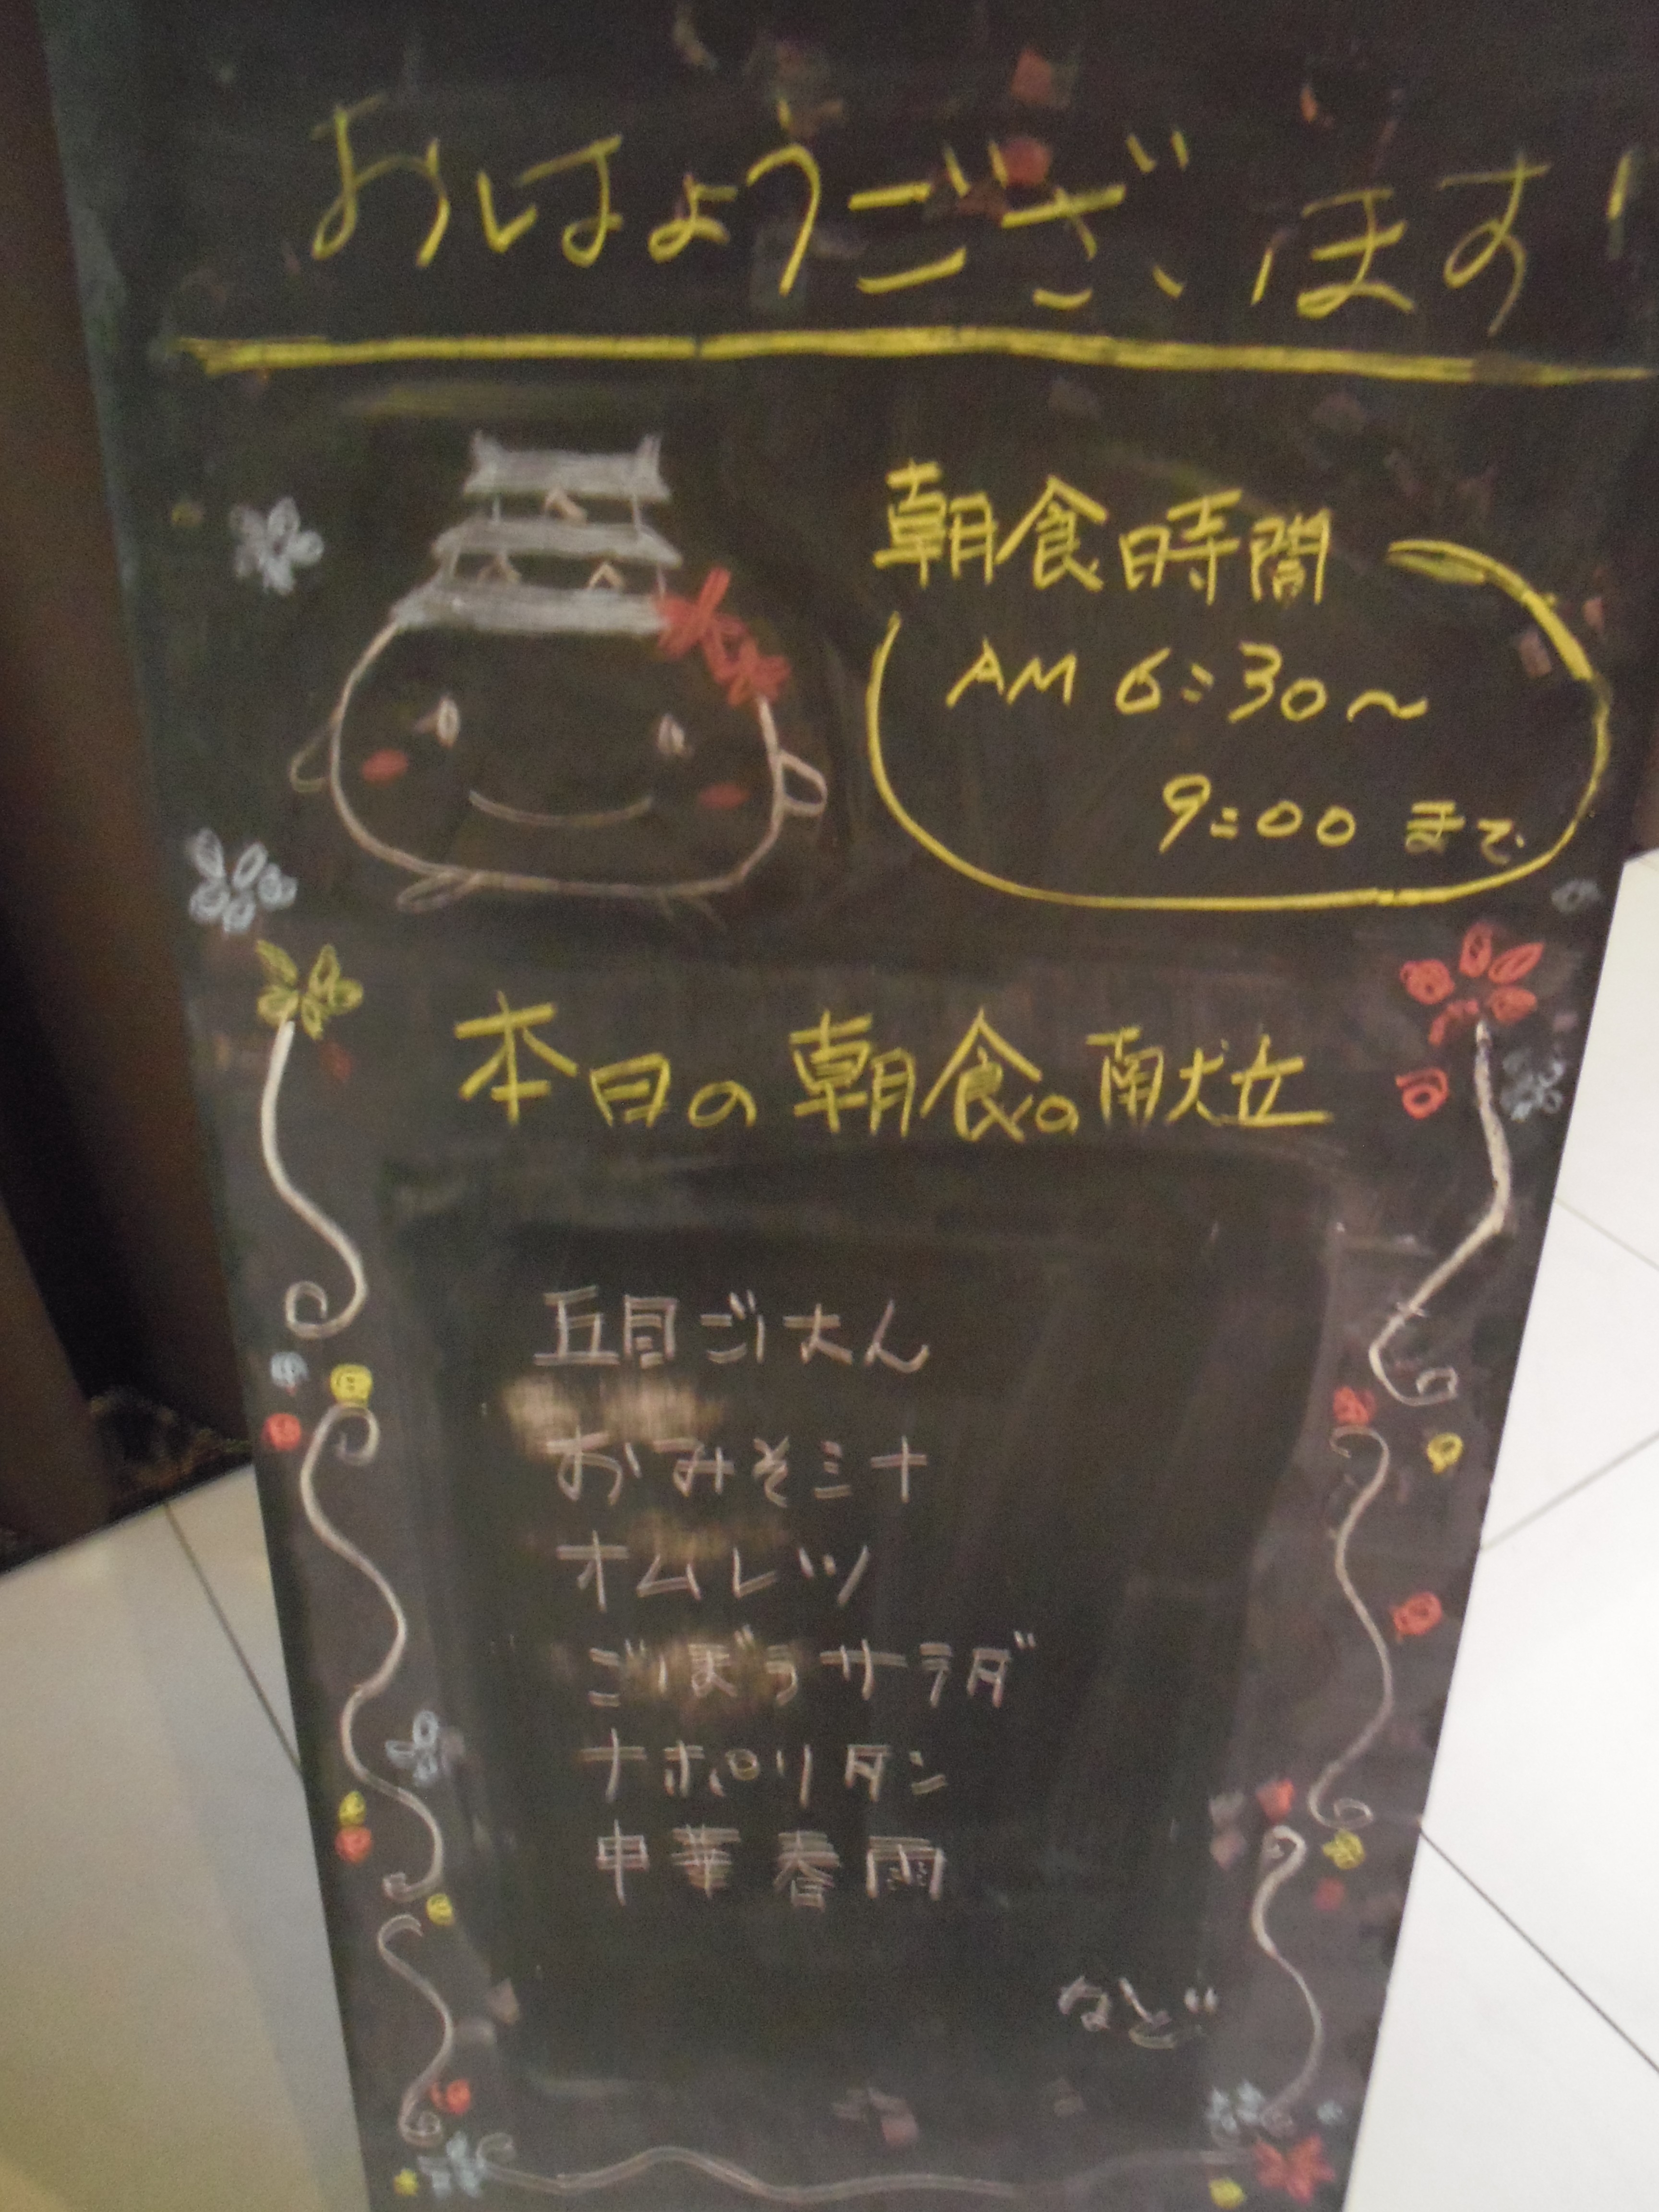 おはようございます!
朝食時間
AM 6:30～
9:00 まで
本日の朝食の献立
五目ごはん
おみそ汁
オムレツ
ごぼうサラダ
ナポリタン
中華春雨
など